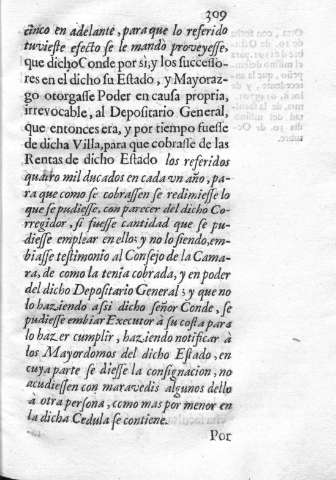 309
cinco en adelante, para que lo referido
tuviesse efecto se le mandò proveyesse,
que dicho Conde por si, y los successo-
res en el dicho su Estado, y Mayoraz-
go otorgasse Poder en causa propria,
irrevocable, al Depositario General,
que entonces era, y por tiempo fuesse
de dicha Villa, para que cobrasse de las
Rentas de dicho Estado los referidos
quatro mil ducados en cada vn año, pa-
ra que como se cobrassen se redimiesse lo
que se pudiesse, con parecer del dicho Co-
rregidor, si fuesse cantidad que se pu-
diesse emplear en ello; y no lo siendo, em-
biasse testimonio al Consejo de la Cama-
ra, de como la tenia cobrada, y en poder
del dicho Depositario General; y que no
lo haziendo assi dicho señor Conde, se
pudiesse embiar Executor à su costa para
lo hazer cumplir, haziendo notificar à
los Mayordomos del dicho Estado, en
cuya parte se diesse la consignacion, no
acudiessen con maravedis algunos dello
à otra persona, como mas por menor en
la dicha Cedula se contiene.
Por